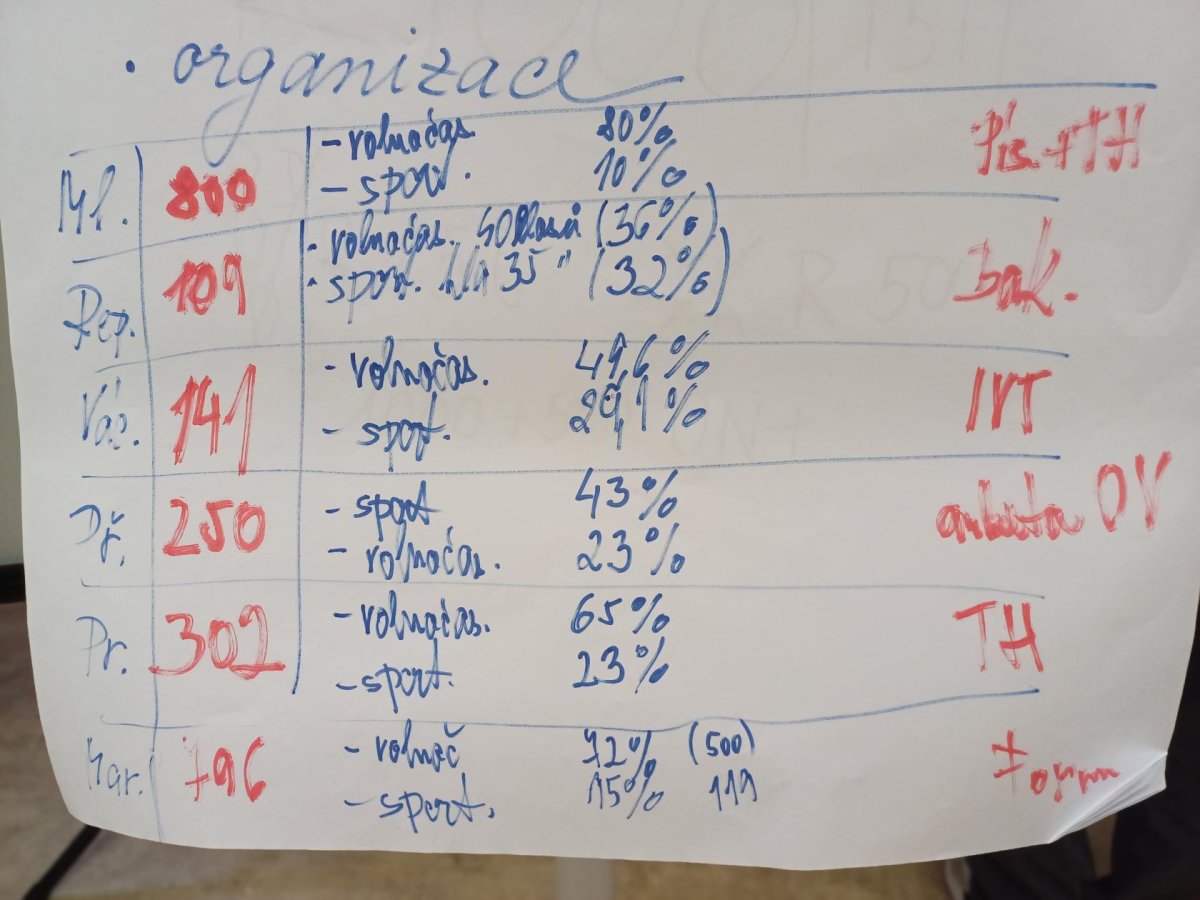 • organizace
Ml. 800 - volnočas. 80% Pís.+TH
- sport. 10%
Řep. 109 - volnočas. 40 hlasů (36%) Bak.
- sport. 35 " (32%)
Vác. 141 - volnočas. 49,6% IVT
- sport. 29,1%
Dř. 250 - sport 43% anketa OV
- volnočas. 23%
Pr. 302 - volnočas. 65% TH
- sport. 23%
Mar. 796 - volnoč 72% (500) Form
- sport. 15% 119